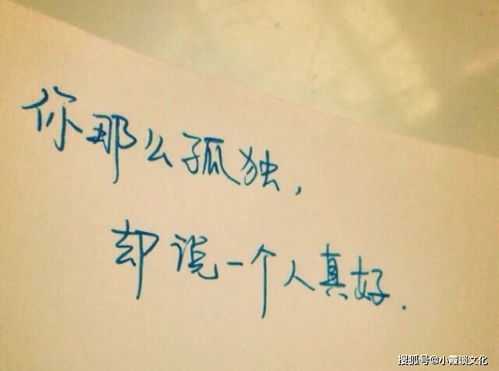 你那么孤独，
却说一个人真好.
搜狐号@小霞谈文化